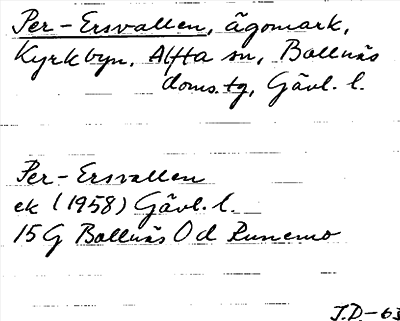 Per-Ersvallen, ägomark,
Kyrkbyn, Alfta sn, Bollnäs
doms.tg, Gävl. l.
Per-Ersvallen
ek (1958) Gävl. l.
15G Bollnäs Od Runemo
J.D.-63